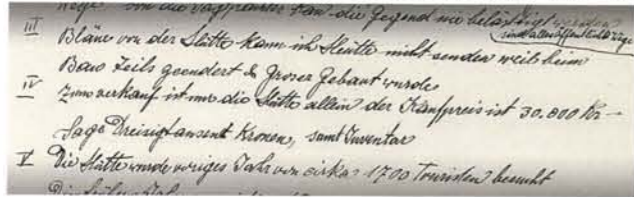 Wege von die die Gegend nie belästigt werden
sind alles öffentliche Wege
III Bläne von der Hütte kann ich Heutte nicht senden weil beim
Baw Teils geendert & Groser Gebaut wurde
IV Zum verkauf ist nur die Hütte allein der Kaufpreis ist 30.000 Kr —
Sage Dreisigtausent Kronen, samt Inventar
V Die Hütte wurde voriges Jahr von cirka 1700 Touristen besucht